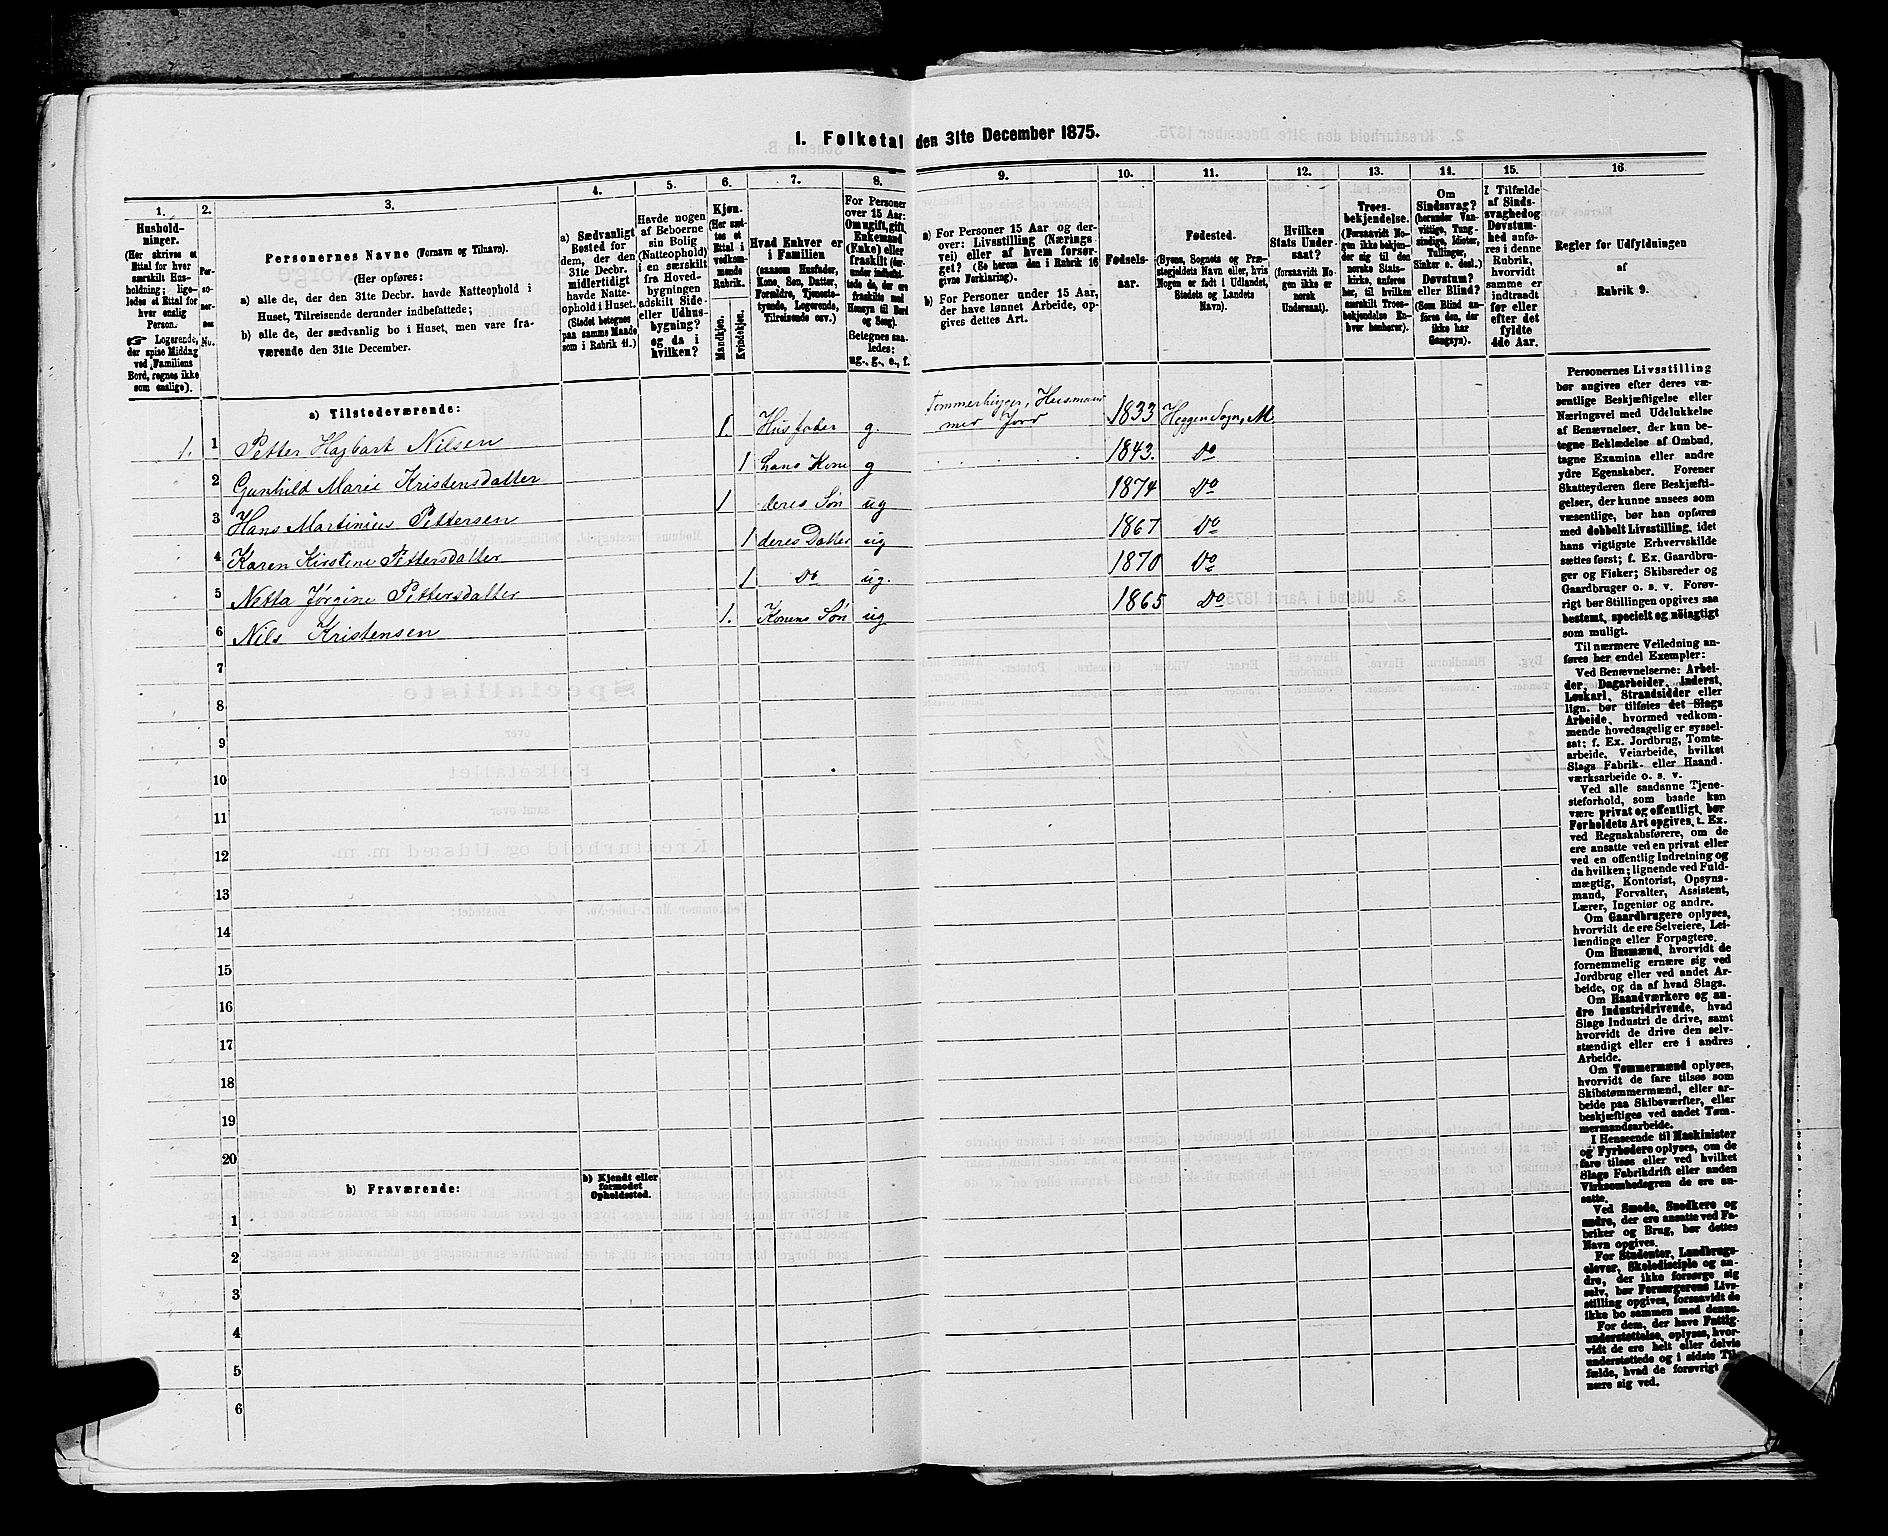 1. Folketal den 31te December 1875.
1.
Husholdninger.
(Her skrives et
Ettal for hver
særskilt Hus-
holdning; lige-
ledes et Ettal for
hver enslig
Person.
☞ Logerende,
der spise Middag
ved Familiens
Bord, regnes ikke
som enslige).
2.
Personernes No.
3.
Personernes Navne (Fornavn og Tilnavn).
(Her opføres:
a) alle de, der den 31te Decbr. havde Natteophold i
Huset, Tilreisende derunder indbefattede;
b) alle de, der sædvanlig bo i Huset, men vare fra-
værende den 31te December.
4.
a) Sædvanligt
Bosted for
dem, der den
31te Decbr.
midlertidigt
havde Natte-
ophold i Huset.
(Stedet betegnes
paa samme Maade
som i Rubrik 11.)
5.
Havde nogen
af Beboerne
sin Bolig
(Natteophold)
i en særskilt
fra Hoved-
bygningen
adskilt Side-
eller Udhus-
bygning?
og da i
hvilken?
6.
Kjøn.
(Her sæt-
tes et
Ettal i
vedkom-
mende
Rubrik.
Mandkjøn.
Kvindekjøn.
7.
Hvad Enhver er
i Familien
(saasom Husfader,
Kone, Søn, Datter,
Forældre, Tjeneste-
tyende, Logerende,
Tilreisende osv.)
8.
For Personer
over 15 Aar:
Om ugift, gift,
Enkemand
(Enke) eller
fraskilt
Betegnes saa-
ledes:
ug., g., e., f.
9.
a) For Personer 15 Aar og der-
over: Livsstilling (Nærings-
vei) eller af hvem forsør-
get? (Se herom den i Rubrik 16
givne Forklaring).
b) For Personer under 15 Aar,
der have lønnet Arbeide, op-
gives dettes Art.
10.
Fødsels-
aar.
11.
Fødested.
(Byens, Sognets og Præ-
stegjeldets Navn eller, hvis
Nogen er født i Udlandet,
Stedets og Landets
Navn).
12.
Hvilken
Stats Under-
saat?
(forsaavidt No-
gen ikke er
norsk
Undersaat).
13.
Troes-
bekjendelse.
(Forsaavidt No-
gen ikke bekjen-
der sig til den
norske Stats-
kirke, anføres
her, til hvilken
særskilt Troes-
bekjendelse En-
hver henhører).
14.
Om
Sindssvag?
(herunder Van-
vittige, Tung-
sindige, Idioter,
Tullinger,
Sinker o. desl.)
Døvstum?
eller Blind?
(Som Blind an-
føres den, der
ikke har
Gangsyn).
15.
I Tilfælde
af Sinds-
svaghed og
Døvstum-
hed anfø-
res i denne
Rubrik,
hvorvidt
samme er
indtraadt
før eller
efter det
fyldte
4de Aar.
16.
Regler for Udfyldningen
af
Rubrik 9.
a) Tilstedeværende:
1. 1 Petter Hagbart Nilsen 1. Husfader g. Tømmerhugger, Husmand med Jord 1833 Heggen Sogn, M.
2 Gunhild Marie Kristensdatter 1 hans Kone g 1843. Do
3 Hans Martinius Pettersen 1 deres Søn ug 1874 Do
4 Karen Kirstine Pettersdatter 1 deres Datter ug 1867 Do
5 Netta Jørgine Pettersdatter 1 Do ug. 1870 Do
6 Nils Kristensen 1. Konens Søn ug 1865 Do
7
8
9
10
11
12
13
14
15
16
17
18
19
20
b) Fraværende:
b) Kjendt eller
formodet
Opholdssted.
1
2
3
4
5
6
Personernes Livsstilling
bør angives efter deres væ-
sentlige Beskjæftigelse eller
Næringsvei med Udelukkelse
af Benævnelser, der kun be-
tegne Beklædelse af Ombud,
tagne Examina eller andre
ydre Egenskaber. Forener
Skatteyderen flere Beskjæfti-
gelser, der kunne ansees som
væsentlige, bør han opføres
med dobbelt Livsstilling, idet
hans vigtigste Erhvervskilde
sættes først; f. Ex. Gaardbru-
ger og Fisker; Skibsreder og
Gaardbruger o. s. v. Forøv-
rigt bør Stillingen opgives saa
bestemt, specielt og nøiagtigt
som muligt.
Til nærmere Veiledning an-
føres her endel Exempler:
Ved Benævnelserne: Arbei-
der, Dagarbeider, Inderst,
Løskarl, Strandsidder eller
lign. bør tilføies det Slags
Arbeide, hvormed vedkom-
mende hovedsagelig er syssel-
sat; f. Ex. Jordbrug, Tomte-
arbeide, Veiarbeide, hvilket
Slags Fabrik- eller Haand-
værksarbeide o. s. v.
Ved alle saadanne Tjene-
steforhold, som baade kan
være privat og offentligt, bør
Forholdets Art opgives, f. Ex.
ved Regnskabsførere, om de
ere ansatte ved en privat eller
ved en offentlig Indretning og
da hvilken; lignende ved Fuld-
mægtig, Kontorist, Opsyns-
mand, Forvalter, Assistent,
Lærer, Ingeniør og andre.
Om Gaardbrugere oplyses,
hvorvidt de ere Selveiere, Lei-
lændinge eller Forpagtere.
Om Husmænd, hvorvidt de
fornemmelig ernære sig ved
Jordbrug eller ved andet Ar-
beide, og da af hvad Slags.
Om Haandværkere og an-
dre Industridrivende, hvad
Slags Industri de drive, samt
hvorvidt de drive den selv-
stændigt eller ere i andres
Arbeide.
Om Tømmermænd oplyses,
hvorvidt de fare tilsøs som
Skibstømmermænd, eller ar-
beide paa Skibsværfter, eller
beskjæftiges ved andet Tøm-
mermandsarbeide.
I Henseende til Maskinister
og Fyrbødere oplyses, om de
fare tilsøs eller ved hvilket
Slags Fabrikdrift eller anden
Virksomhedsgren de ere an-
satte.
Ved Smede, Snedkere og
andre, der ere ansatte ved Fa-
briker og Brug, bør dettes
Navn opgives.
For Studenter, Landbrugs-
elever, Skoledisciple og an-
dre, der ikke forsørge sig
selv, bør Forsørgerens Livs-
stilling opgives, forsaavidt de
ikke bo sammen med denne.
For dem, der have Fattig-
understøttelse, oplyses, hvor-
vidt de ere helt eller delvis
understøttede og i sidste Til-
fælde, hvad de forøvrigt er-
nære sig ved.